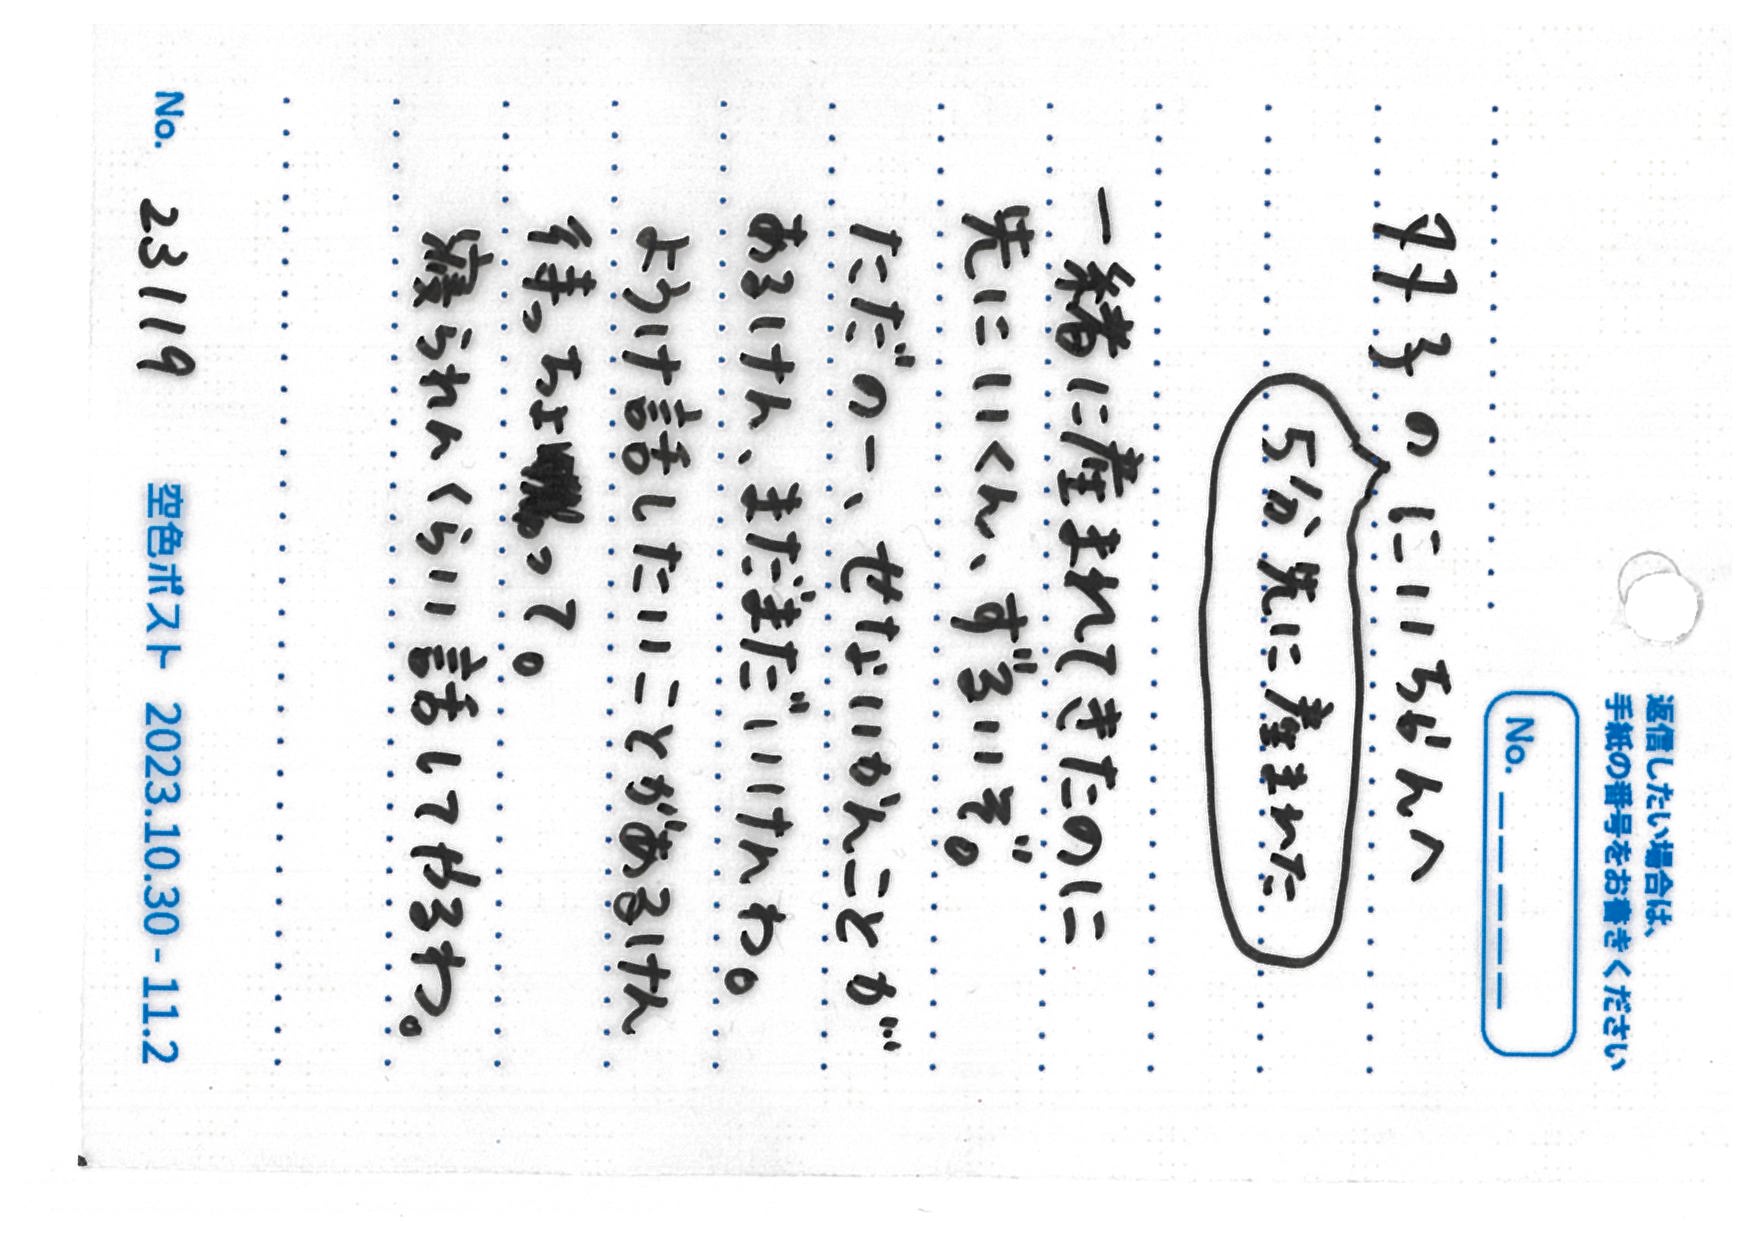 返信したい場合は、
手紙の番号をお書きください
No. _ _ _ _ _
双子のにいちゃんへ
5分先に産まれた
一緒に産まれてきたのに
先にいくん、ずるいぞ。
ただのー、せないかんことが
あるけん、まだまだいけんわ。
ようけ話したいことがあるけん
待っちょって。
寝られんくらい話してやるわ。
No. 23119
空色ポスト 2023.10.30 - 11.2